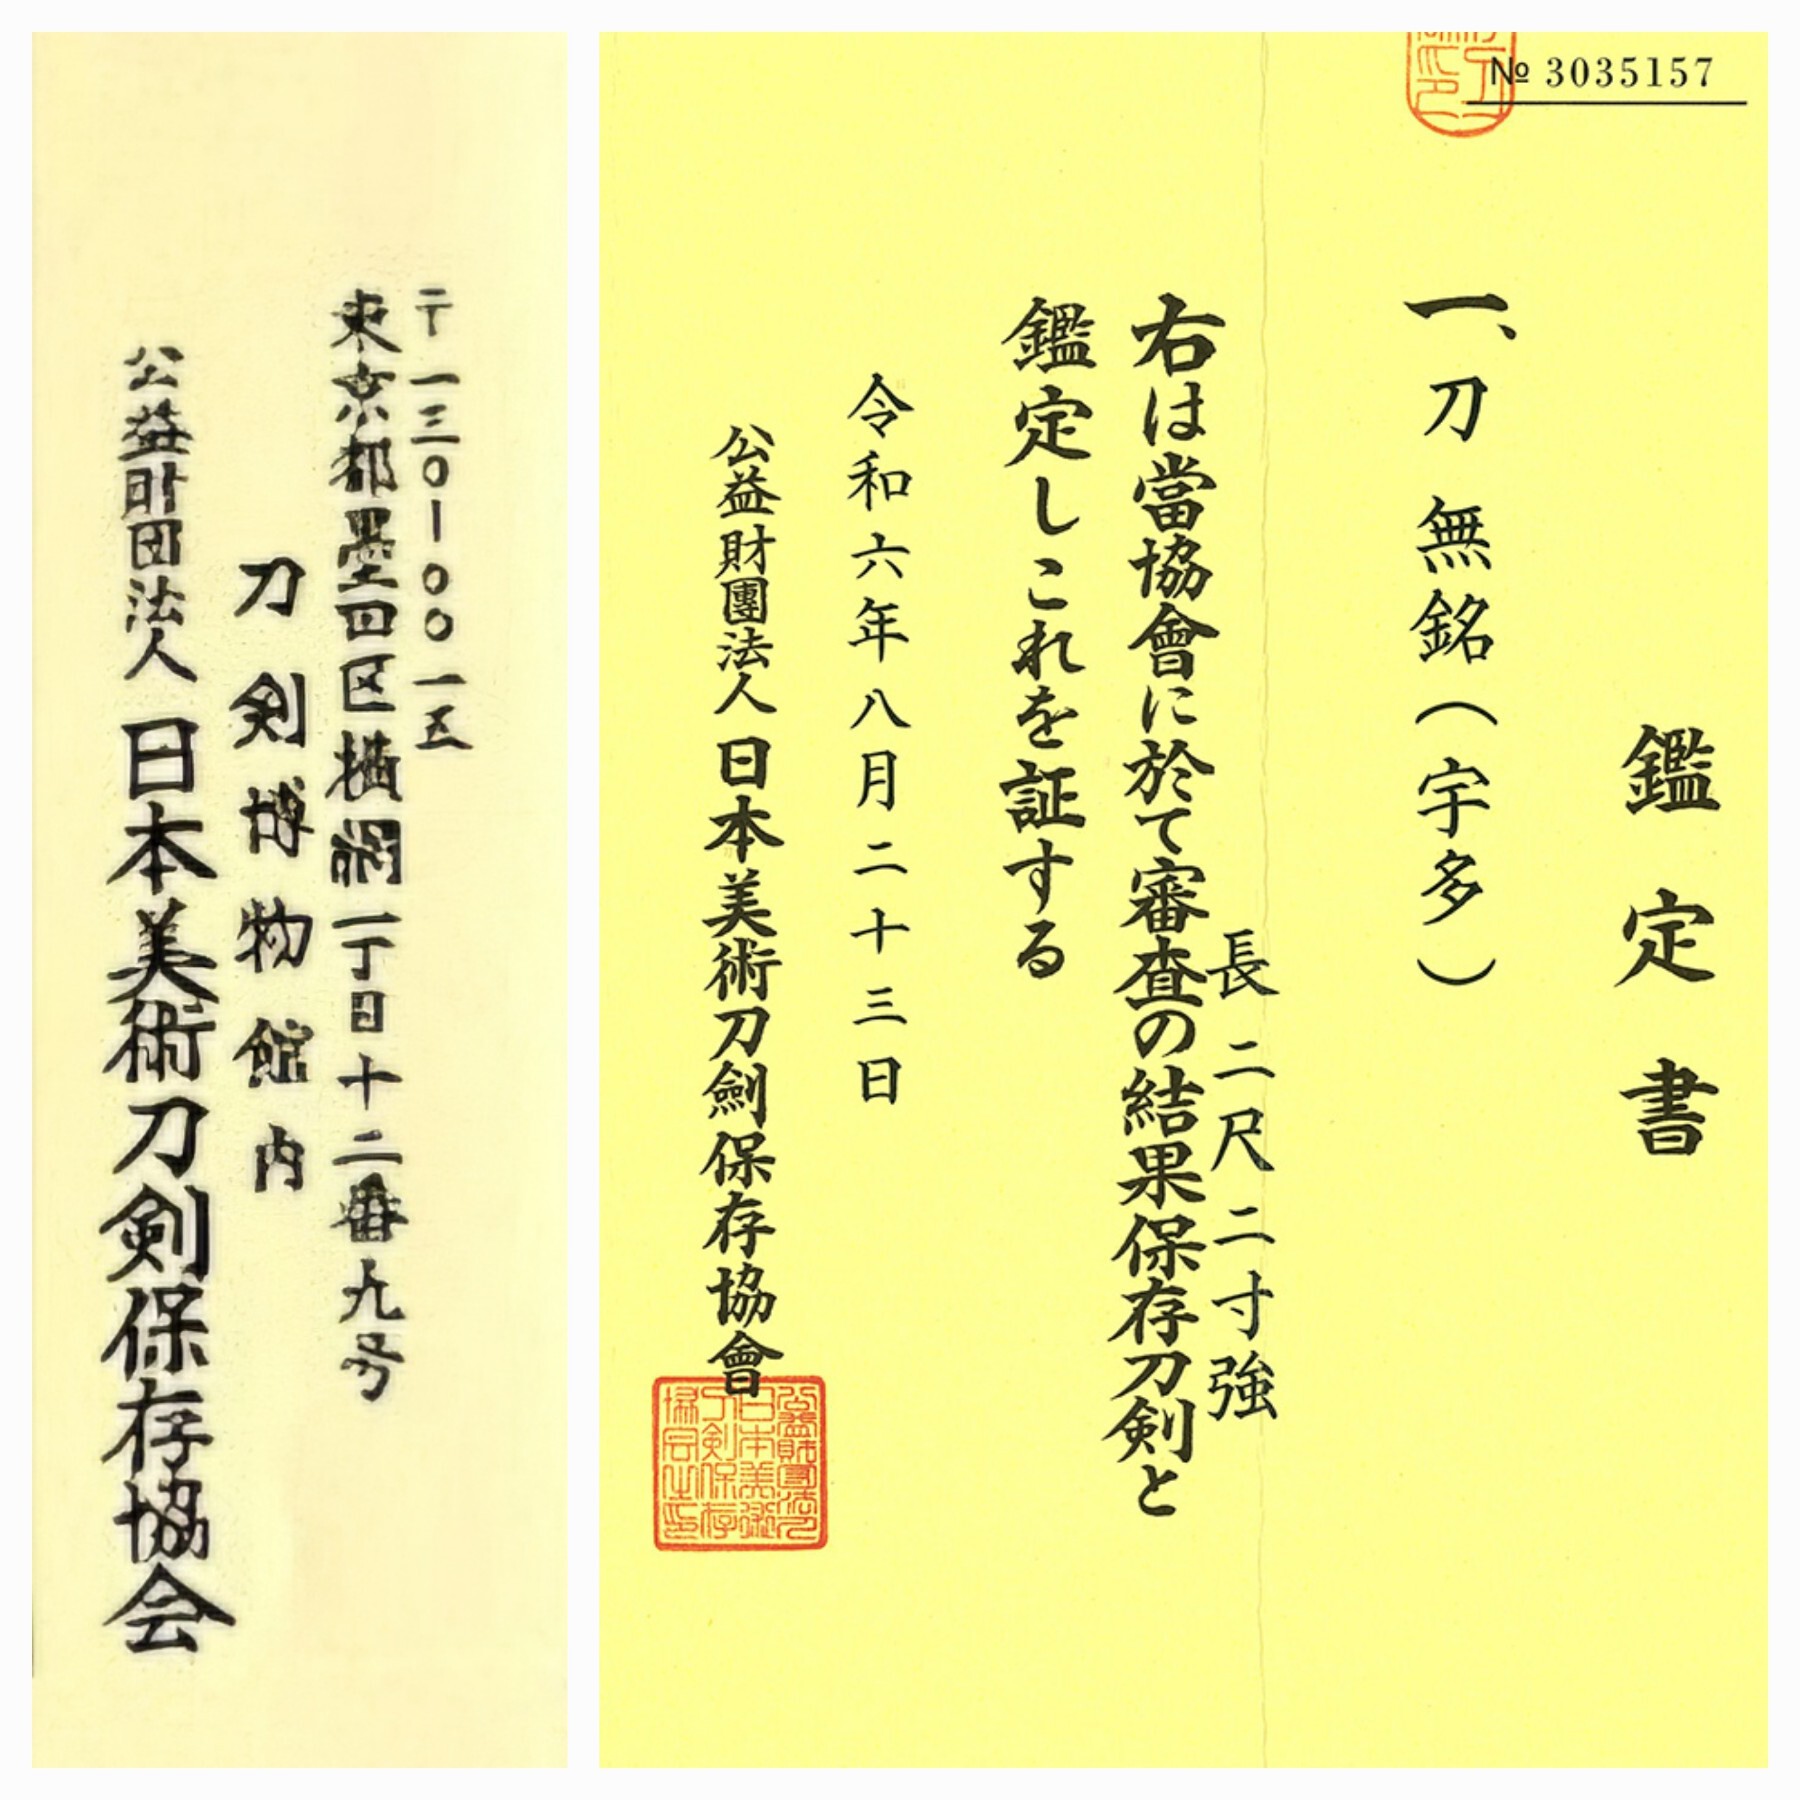 〒一三〇-〇〇一五
東京都墨田区横網一丁目十二番九号
刀剣博物館内
公益財団法人 日本美術刀剣保存協会
№ 3035157
鑑定書
一、刀 無銘(宇多)
長 二尺二寸強
右は當協會に於て審査の結果保存刀剣と
鑑定しこれを証する
令和六年八月二十三日
公益財團法人 日本美術刀劍保存協會